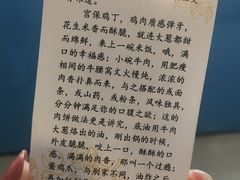 宫保鸡丁,鸡肉质感弹牙,
花生米香而酥脆,就连大葱都甜
而绵鲜,来上一碗米饭,哦,满
口的幸福感;小碗牛肉,用肥瘦
相间的牛腰窝文火慢炖,浓浓的
肉香扑鼻而来,与之搭配的或面
或山药,或粉条,风味独具,
分分钟满足你的口腹之欲;这的
肉饼做法更是讲究,底油用牛肉
大葱炼出的油,刚出锅的时候,
外皮脆脆,晚上一口,酥酥的口
感,满满的肉香,那叫一个过瘾;
酱鸡爪,与别家不同,油炸之后